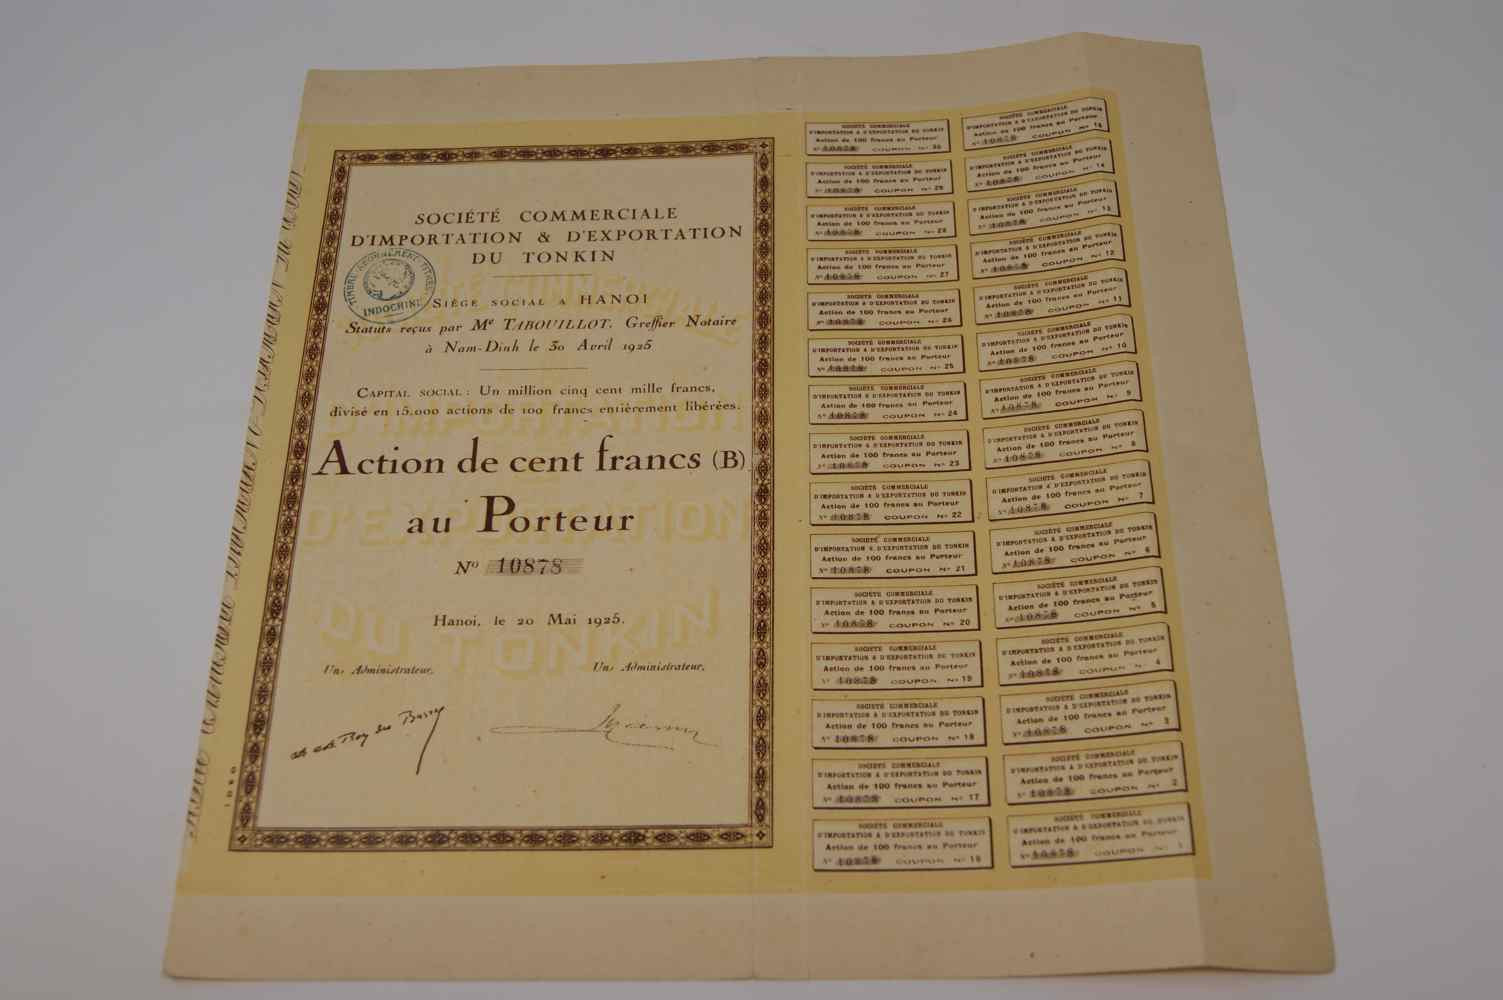 SOCIÉTÉ COMMERCIALE
D'IMPORTATION & D'EXPORTATION
DU TONKIN
TIMBRE ABONNEMENT TITRES
INDOCHINE
SIÈGE SOCIAL A HANOI
Statuts reçus par Me TABOUILLOT, Greffier Notaire
à Nam-Dinh le 30 Avril 1925
CAPITAL SOCIAL : Un million cinq cent mille francs,
divisé en 15.000 actions de 100 francs entièrement libérées.
Action de cent francs (B)
au Porteur
No 10878
Hanoi, le 20 Mai 1925.
Un Administrateur, Un Administrateur,
IDEO
D'IMPORTATION
D'EXPORTATION
DU TONKIN
SOCIÉTÉ COMMERCIALE
D'IMPORTATION & D'EXPORTATION DU TONKIN
Action de 100 francs au Porteur
No 10878 COUPON No 30
SOCIÉTÉ COMMERCIALE
D'IMPORTATION & D'EXPORTATION DU TONKIN
Action de 100 francs au Porteur
No 10878 COUPON No 29
SOCIÉTÉ COMMERCIALE
D'IMPORTATION & D'EXPORTATION DU TONKIN
Action de 100 francs au Porteur
No 10878 COUPON No 28
SOCIÉTÉ COMMERCIALE
D'IMPORTATION & D'EXPORTATION DU TONKIN
Action de 100 francs au Porteur
No 10878 COUPON No 27
SOCIÉTÉ COMMERCIALE
D'IMPORTATION & D'EXPORTATION DU TONKIN
Action de 100 francs au Porteur
No 10878 COUPON No 26
SOCIÉTÉ COMMERCIALE
D'IMPORTATION & D'EXPORTATION DU TONKIN
Action de 100 francs au Porteur
No 10878 COUPON No 25
SOCIÉTÉ COMMERCIALE
D'IMPORTATION & D'EXPORTATION DU TONKIN
Action de 100 francs au Porteur
No 10878 COUPON No 24
SOCIÉTÉ COMMERCIALE
D'IMPORTATION & D'EXPORTATION DU TONKIN
Action de 100 francs au Porteur
No 10878 COUPON No 23
SOCIÉTÉ COMMERCIALE
D'IMPORTATION & D'EXPORTATION DU TONKIN
Action de 100 francs au Porteur
No 10878 COUPON No 22
SOCIÉTÉ COMMERCIALE
D'IMPORTATION & D'EXPORTATION DU TONKIN
Action de 100 francs au Porteur
No 10878 COUPON No 21
SOCIÉTÉ COMMERCIALE
D'IMPORTATION & D'EXPORTATION DU TONKIN
Action de 100 francs au Porteur
No 10878 COUPON No 20
SOCIÉTÉ COMMERCIALE
D'IMPORTATION & D'EXPORTATION DU TONKIN
Action de 100 francs au Porteur
No 10878 COUPON No 19
SOCIÉTÉ COMMERCIALE
D'IMPORTATION & D'EXPORTATION DU TONKIN
Action de 100 francs au Porteur
No 10878 COUPON No 18
SOCIÉTÉ COMMERCIALE
D'IMPORTATION & D'EXPORTATION DU TONKIN
Action de 100 francs au Porteur
No 10878 COUPON No 17
SOCIÉTÉ COMMERCIALE
D'IMPORTATION & D'EXPORTATION DU TONKIN
Action de 100 francs au Porteur
No 10878 COUPON No 16
SOCIÉTÉ COMMERCIALE
D'IMPORTATION & D'EXPORTATION DU TONKIN
Action de 100 francs au Porteur
No 10878 COUPON No 15
SOCIÉTÉ COMMERCIALE
D'IMPORTATION & D'EXPORTATION DU TONKIN
Action de 100 francs au Porteur
No 10878 COUPON No 14
SOCIÉTÉ COMMERCIALE
D'IMPORTATION & D'EXPORTATION DU TONKIN
Action de 100 francs au Porteur
No 10878 COUPON No 13
SOCIÉTÉ COMMERCIALE
D'IMPORTATION & D'EXPORTATION DU TONKIN
Action de 100 francs au Porteur
No 10878 COUPON No 12
SOCIÉTÉ COMMERCIALE
D'IMPORTATION & D'EXPORTATION DU TONKIN
Action de 100 francs au Porteur
No 10878 COUPON No 11
SOCIÉTÉ COMMERCIALE
D'IMPORTATION & D'EXPORTATION DU TONKIN
Action de 100 francs au Porteur
No 10878 COUPON No 10
SOCIÉTÉ COMMERCIALE
D'IMPORTATION & D'EXPORTATION DU TONKIN
Action de 100 francs au Porteur
No 10878 COUPON No 9
SOCIÉTÉ COMMERCIALE
D'IMPORTATION & D'EXPORTATION DU TONKIN
Action de 100 francs au Porteur
No 10878 COUPON No 8
SOCIÉTÉ COMMERCIALE
D'IMPORTATION & D'EXPORTATION DU TONKIN
Action de 100 francs au Porteur
No 10878 COUPON No 7
SOCIÉTÉ COMMERCIALE
D'IMPORTATION & D'EXPORTATION DU TONKIN
Action de 100 francs au Porteur
No 10878 COUPON No 6
SOCIÉTÉ COMMERCIALE
D'IMPORTATION & D'EXPORTATION DU TONKIN
Action de 100 francs au Porteur
No 10878 COUPON No 5
SOCIÉTÉ COMMERCIALE
D'IMPORTATION & D'EXPORTATION DU TONKIN
Action de 100 francs au Porteur
No 10878 COUPON No 4
SOCIÉTÉ COMMERCIALE
D'IMPORTATION & D'EXPORTATION DU TONKIN
Action de 100 francs au Porteur
No 10878 COUPON No 3
SOCIÉTÉ COMMERCIALE
D'IMPORTATION & D'EXPORTATION DU TONKIN
Action de 100 francs au Porteur
No 10878 COUPON No 2
SOCIÉTÉ COMMERCIALE
D'IMPORTATION & D'EXPORTATION DU TONKIN
Action de 100 francs au Porteur
No 10878 COUPON No 1